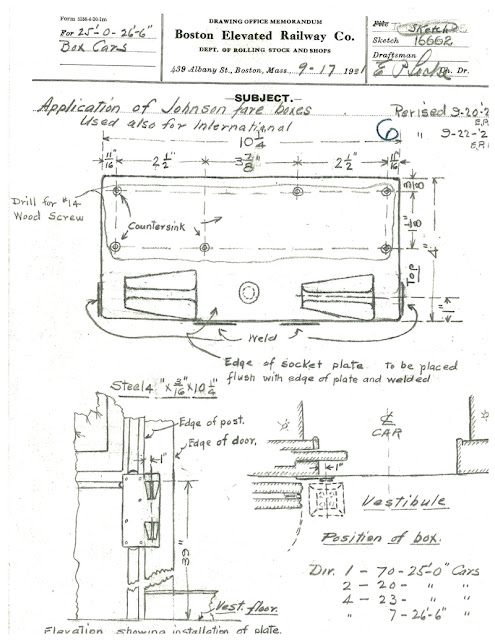 Form 5156-4-20-1m
DRAWING OFFICE MEMORANDUM
File
Sketch
For 25'-0 - 26'-6"
Box Cars
Boston Elevated Railway Co.
DEPT. OF ROLLING STOCK AND SHOPS
439 Albany St., Boston, Mass. 9-17 1921
Sketch 16662
Draftsman
Ch. Dr.
SUBJECT.
Application of Johnson fare boxes
Used also for International
Revised 9-20-2
" 9-22-2
6
10 1/4
11/16
2 1/2
3 7/8"
2 1/2
11/16
Drill for #14
Wood Screw
Countersink
3/8
1 1/8"
4"
Top
1"
Weld
Edge of socket plate to be placed
flush with edge of plate and welded
Steel 4"x 3/16"x10 1/4"
Edge of post.
Edge of door.
1"
39"
Vest. floor.
Elevation showing installation of plate.
CL
CAR
1"
Vestibule
Position of box.
Div. 1 - 70 - 25'-0" Cars
2 - 20 - " "
4 - 23 - " "
" 7 - 26'-6" "